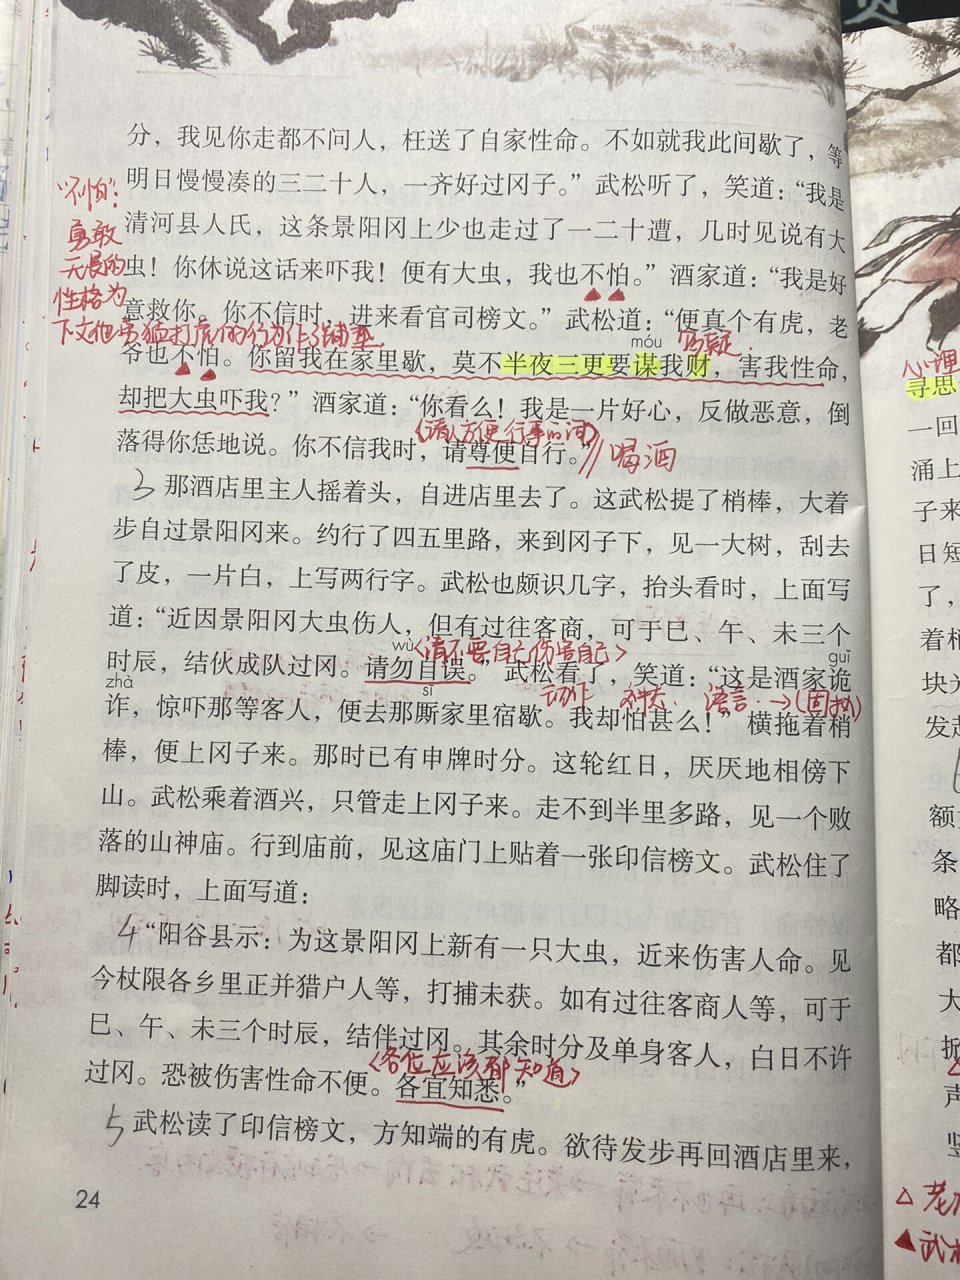 分，我见你走都不问人，枉送了自家性命。不如就我此间歇了，等
明日慢慢凑的三二十人，一齐好过冈子。”武松听了，笑道：“我是
清河县人氏，这条景阳冈上少也走过了一二十遭，几时见说有大
虫！你休说这话来吓我！便有大虫，我也不怕。”酒家道：“我是好
意救你，你不信时，进来看官司榜文。”武松道：“便真个有虎，老
爷也不怕。你留我在家里歇，莫不半夜三更要谋我财，害我性命，
móu
却把大虫吓我？”酒家道：“你看么！我是一片好心，反做恶意，倒
落得你恁地说。你不信我时，请尊便自行。”
“不怕”：
勇敢
无畏的
性格为
下文他勇猛打虎的行为作了铺垫
多疑
（请人方便行事的词）
喝酒
3 那酒店里主人摇着头，自进店里去了。这武松提了梢棒，大着
步自过景阳冈来。约行了四五里路，来到冈子下，见一大树，刮去
了皮，一片白，上写两行字。武松也颇识几字，抬头看时，上面写
道：“近因景阳冈大虫伤人，但有过往客商，可于巳、午、未三个
时辰，结伙成队过冈。请勿自误。”武松看了，笑道：“这是酒家诡
wù
guǐ
<请不要自己伤害自己>
诈，惊吓那等客人，便去那厮家里宿歇。我却怕甚么！”横拖着梢
zhà
sī
动作 神态 语言 →（固执）
棒，便上冈子来。那时已有申牌时分。这轮红日，厌厌地相傍下
山。武松乘着酒兴，只管走上冈子来。走不到半里多路，见一个败
落的山神庙。行到庙前，见这庙门上贴着一张印信榜文。武松住了
脚读时，上面写道：
4 “阳谷县示：为这景阳冈上新有一只大虫，近来伤害人命。见
今杖限各乡里正并猎户人等，打捕未获。如有过往客商人等，可于
巳、午、未三个时辰，结伴过冈。其余时分及单身客人，白日不许
过冈。恐被伤害性命不便。各宜知悉。”
<各位应该都知道>
5 武松读了印信榜文，方知端的有虎。欲待发步再回酒店里来，
24
心理
寻思
一回
涌上
子来
日短
了，
着梢
块
发起
额
条
略
都
大
掀
声
竖